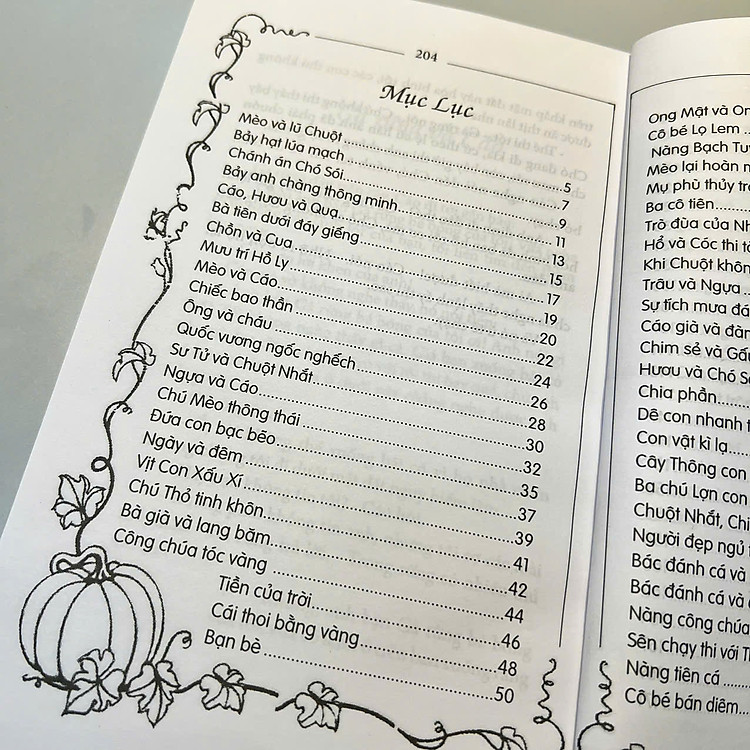 204
Mục Lục
Mèo và lũ Chuột.....5
Bảy hạt lúa mạch.....7
Chánh án Chó Sói.....9
Bảy anh chàng thông minh.....11
Cáo, Hươu và Quạ.....13
Bà tiên dưới đáy giếng.....15
Chồn và Cua.....17
Mưu trí Hồ Ly.....19
Mèo và Cáo.....20
Chiếc bao thần.....22
Ông và cháu.....24
Quốc vương ngốc nghếch.....26
Sư Tử và Chuột Nhắt.....28
Ngựa và Cáo.....30
Chú Mèo thông thái.....32
Đứa con bạc bẽo.....35
Ngày và đêm.....37
Vịt Con Xấu Xí.....39
Chú Thỏ tinh khôn.....41
Bà già và lang băm.....42
Công chúa tóc vàng.....44
Tiền của trời.....46
Cái thoi bằng vàng.....48
Bạn bè.....50
Ong Mật và
Cô bé Lọ Lem
Nàng Bạch
Mèo lại hoàn
Mụ phù thủy
Ba cô tiên
Trò đùa của
Hổ và Cóc thi
Khi Chuột
Trâu và Ngựa
Sự tích mưa
Cáo già và
Chim sẻ và
Hươu và Chó
Chia phần
Dê con nhanh
Con vật kì lạ
Cây Thông con
Ba chú Lợn con
Chuột Nhắt,
Người đẹp ngủ
Bác đánh cá và
Bác đánh cá và
Nàng công chúa
Sên chạy thi với
Nàng tiên cá
Cô bé bán diêm